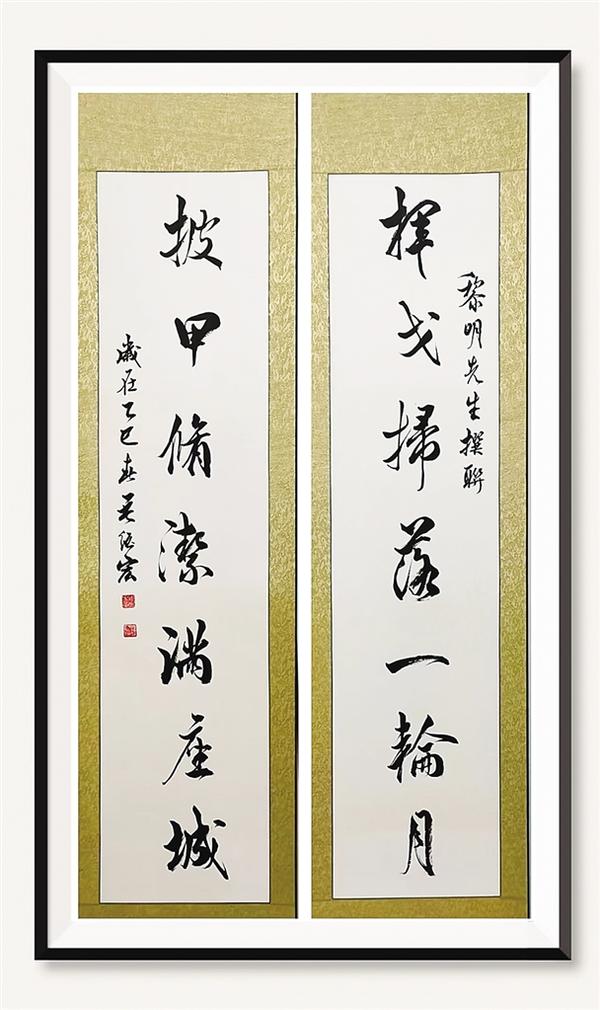 黎明先生撰聯
揮戈掃落一輪月
披甲脩潔滿座城
歲在乙巳春吴德宏